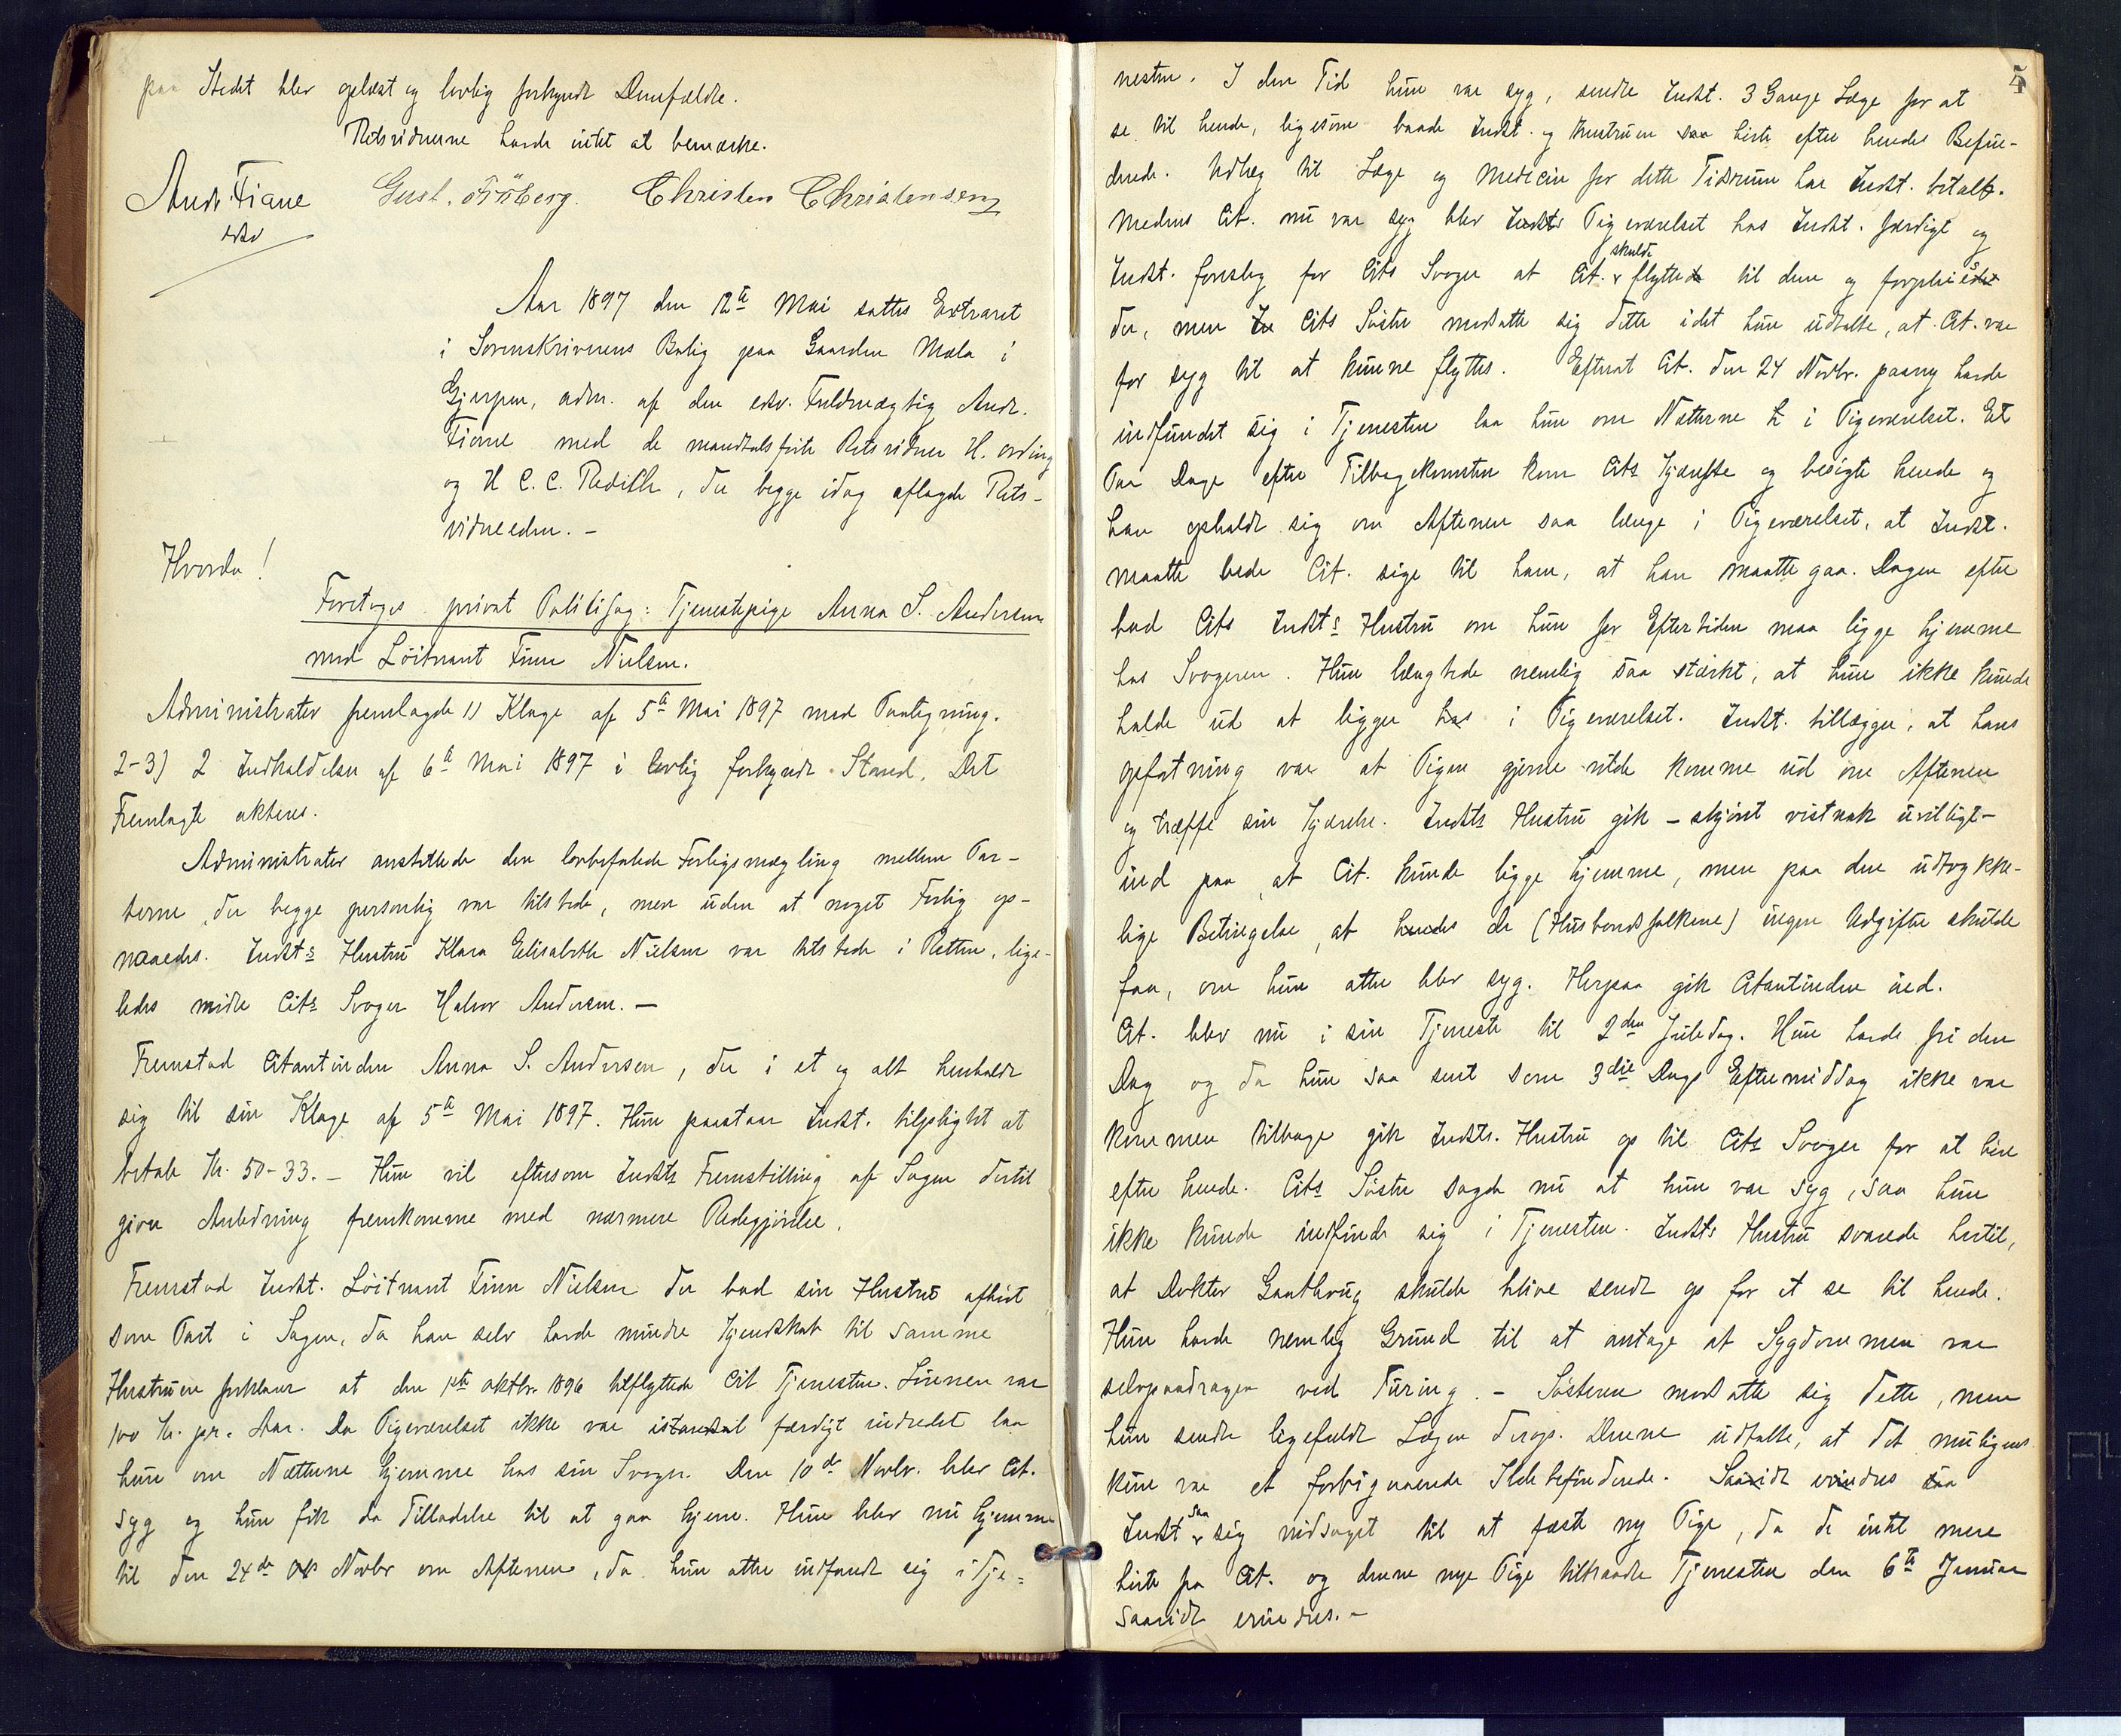 paa Stedet blev oplæst og lovlig forkyndt Domfældte.
Retsvidnerne havde intet at bemærke.
Andr. Fiane Gust. Fröberg. Christen Christensen
edsv
Aar 1897 den 12te Mai sattes Extraret
i Sorenskriverens Bolig paa Gaarden Mæla i
Gjerpen, adm. af den edsv. Fuldmægtig Andr.
Fiane med de mandtalsførte Retsvidner H. Ording
og H C. C. Redich, der begge idag aflagde Rets-
vidneeden. -
Hvorda!
Foretoges privat Politisag: Tjenestepige Anna S. Andersen
mod Löitnant Finn Nielsen.
Administrator fremlagde 1) Klage af 5te Mai 1897 med Paategning.
2-3) 2 Indkaldelser af 6te Mai 1897 i lovlig forkyndt Stand. Det
Fremlagte akteres.
Administrator anstillede den lovbefalede Forligsmægling mellem Par-
terne, der begge personlig var tilstede, men uden at noget Forlig op-
naaedes. Indsts Hustru Klara Elisabeth Nielsen var tilstede i Retten, lige-
ledes mødte Cits Svoger Halvor Andersen. -
Fremstod Citantinden Anna S. Andersen, der i et og alt henholdt
sig til sin Klage af 5te Mai 1897. Hun paastaar Indst. tilpligtet at
betale Kr. 50-33. - Hun vil eftersom Indsts Fremstilling af Sagen dertil
giver Anledning fremkomme med nærmere Redegjörelse.
Fremstod Indst. Löitnant Finn Nielsen der bad sin Hustru afhørt
som Part i Sagen, da han selv havde mindre Kjendskab til samme
Hustruen forklarer at den 1ste oktbr. 1896 tilflyttede Cit Tjenesten. Lönnen var
100 Kr. pr. Aar. Da Pigeværelset ikke var istandsat færdigt indredet laa
hun om Nætterne hjemme hos sin Svoger. Den 10de Novbr. blev Cit.
syg og hun fik da Tilladelse til at gaa hjem. Hun blev nu hjemme
til den 24de Novbr om Aftenen, da hun atter indfandt sig i Tje-
5
nesten. I den Tid hun var syg, sendte Indst. 3 Gange Læge for at
se til hende, ligesom baade Indst. og Hustruen saa hørte efter hendes Befin-
dende. Udlæg til Læge og Medicin for dette Tidsrum har Indst. betalt.
Medens Cit. nu var syg blev Indsts Pigeværelset hos Indst. færdigt og
Indst. foreslog for Cits Svoger at Cit. skulde flyttede til dem og forpleiedes
der, men In Cits Söster modsatte sig dette idet hun udtalte, at Cit. var
for syg til at kunne flyttes. Efterat Cit. den 24 Novbr. paany havde
indfundet sig i Tjenesten laa hun om Nætterne h i Pigeværelset. Et
Par Dage efter Tilbagekomsten kom Cits Kjæreste og besögte hende og
han opholdt sig om Aftenen saa længe i Pigeværelset, at Indst.
maatte bede Cit. sige til ham, at han maatte gaa. Dagen efter
bad Cits Indsts Hustru om hun for Eftertiden maa ligge hjemme
hos Svogeren. Hun længtede nemlig saa stærkt, at hun ikke kunde
holde ud at ligger hos i Pigeværelset. Indst. tillægger, at hans
opfatning var at Pigen gjerne vilde komme ud om Aftenen
og træffe sin Kjæreste. Indsts Hustru gik - skjönt vistnok uvilligt -
ind paa, at Cit. kunde ligge hjemme, men paa den udtrykke-
lige Betingelse, at hendes de (Husbondsfolkene) ingen Udgifter skulde
faa, om hun atter blev syg. Herpaa gik Citantinden ind.
Cit. blev nu i sin Tjeneste til 2den Juledag. Hun havde fri den
Dag og da hun saa sent som 3die Dags Eftermiddag ikke var
kommen tilbage gik Indsts. Hustru op til Cits Svoger for at höre
efter hende. Cits Söster sagde nu at hun var syg, saa hun
ikke kunde indfinde sig i Tjenesten. Indsts Hustru svarede hertil,
at Doktor Gaathaug skulde blive sendt op for at se til hende.
Hun havde nemlig Grund til at antage at Sygdommen var
selvpaadragen ved Turing. - Sösteren modsatte sig dette, men
hun sendte ligefuldt Lægen derop. Denne udtalte, at det muligens
kun var et forbigaaende Ildebefindende. Saavidt erindres saa
Indst saa sig nødsaget til at fæste ny Pige, da de intet mere
hørte fra Cit. og denne nye Pige tiltraadte Tjenesten den 6te Januar
saavidt erindres. -